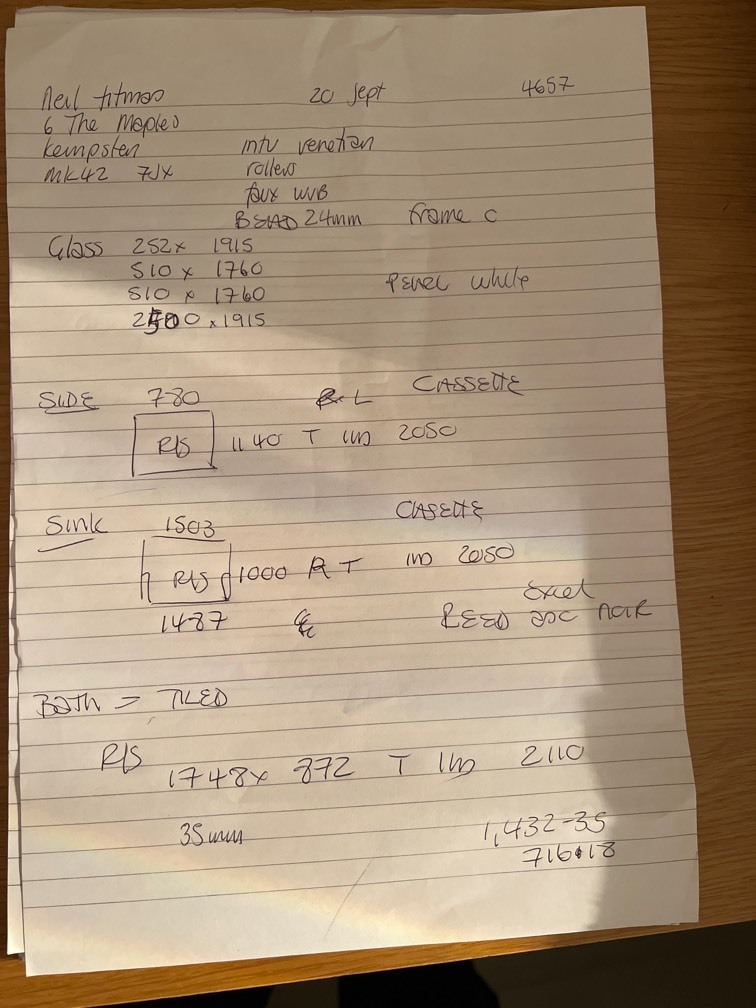 Neil Titmas 20 Sept 4657
6 The Maples
Kempsten intu venetian
MK42 7JX rollers
faux WVB
BEAD 24mm frame c
Glass 252 x 1915
510 x 1760
510 x 1760 Perel white
2500 x 1915
SIDE 780 L CASSETTE
R/S 1140 T IN 2050
Sink 1503 CASETTE
R/S 1000 R T IN 2050
Excel
1487 REED
BATH = TILED
R/S 1748 x 872 T IN 2110
35mm 1,432-35
716.18